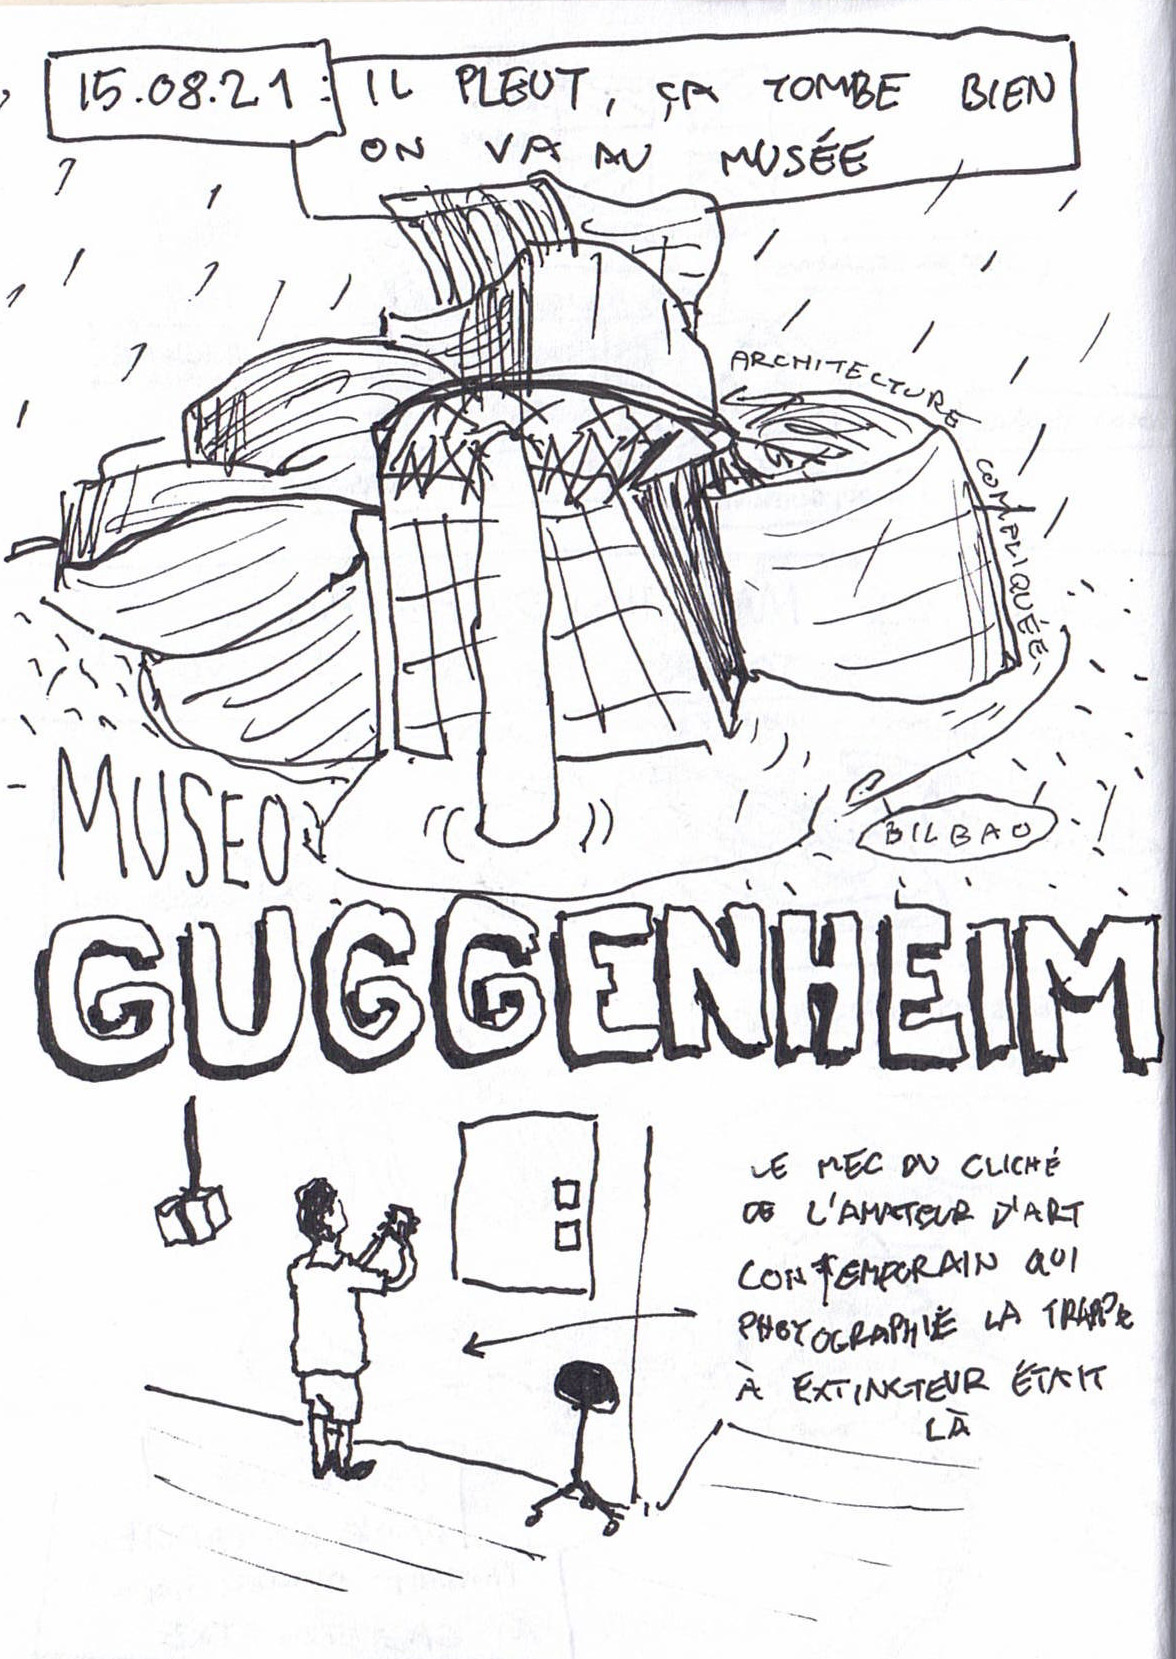 15.08.21 : IL PLEUT, ÇA TOMBE BIEN
ON VA AU MUSÉE
ARCHITECTURE
COMPLIQUÉE
MUSEO
BILBAO
GUGGENHEIM
LE MEC DU CLICHÉ
DE L'AMATEUR D'ART
CONTEMPORAIN QUI
PHOTOGRAPHIE LA TRAPPE
À EXTINCTEUR ÉTAIT
LÀ